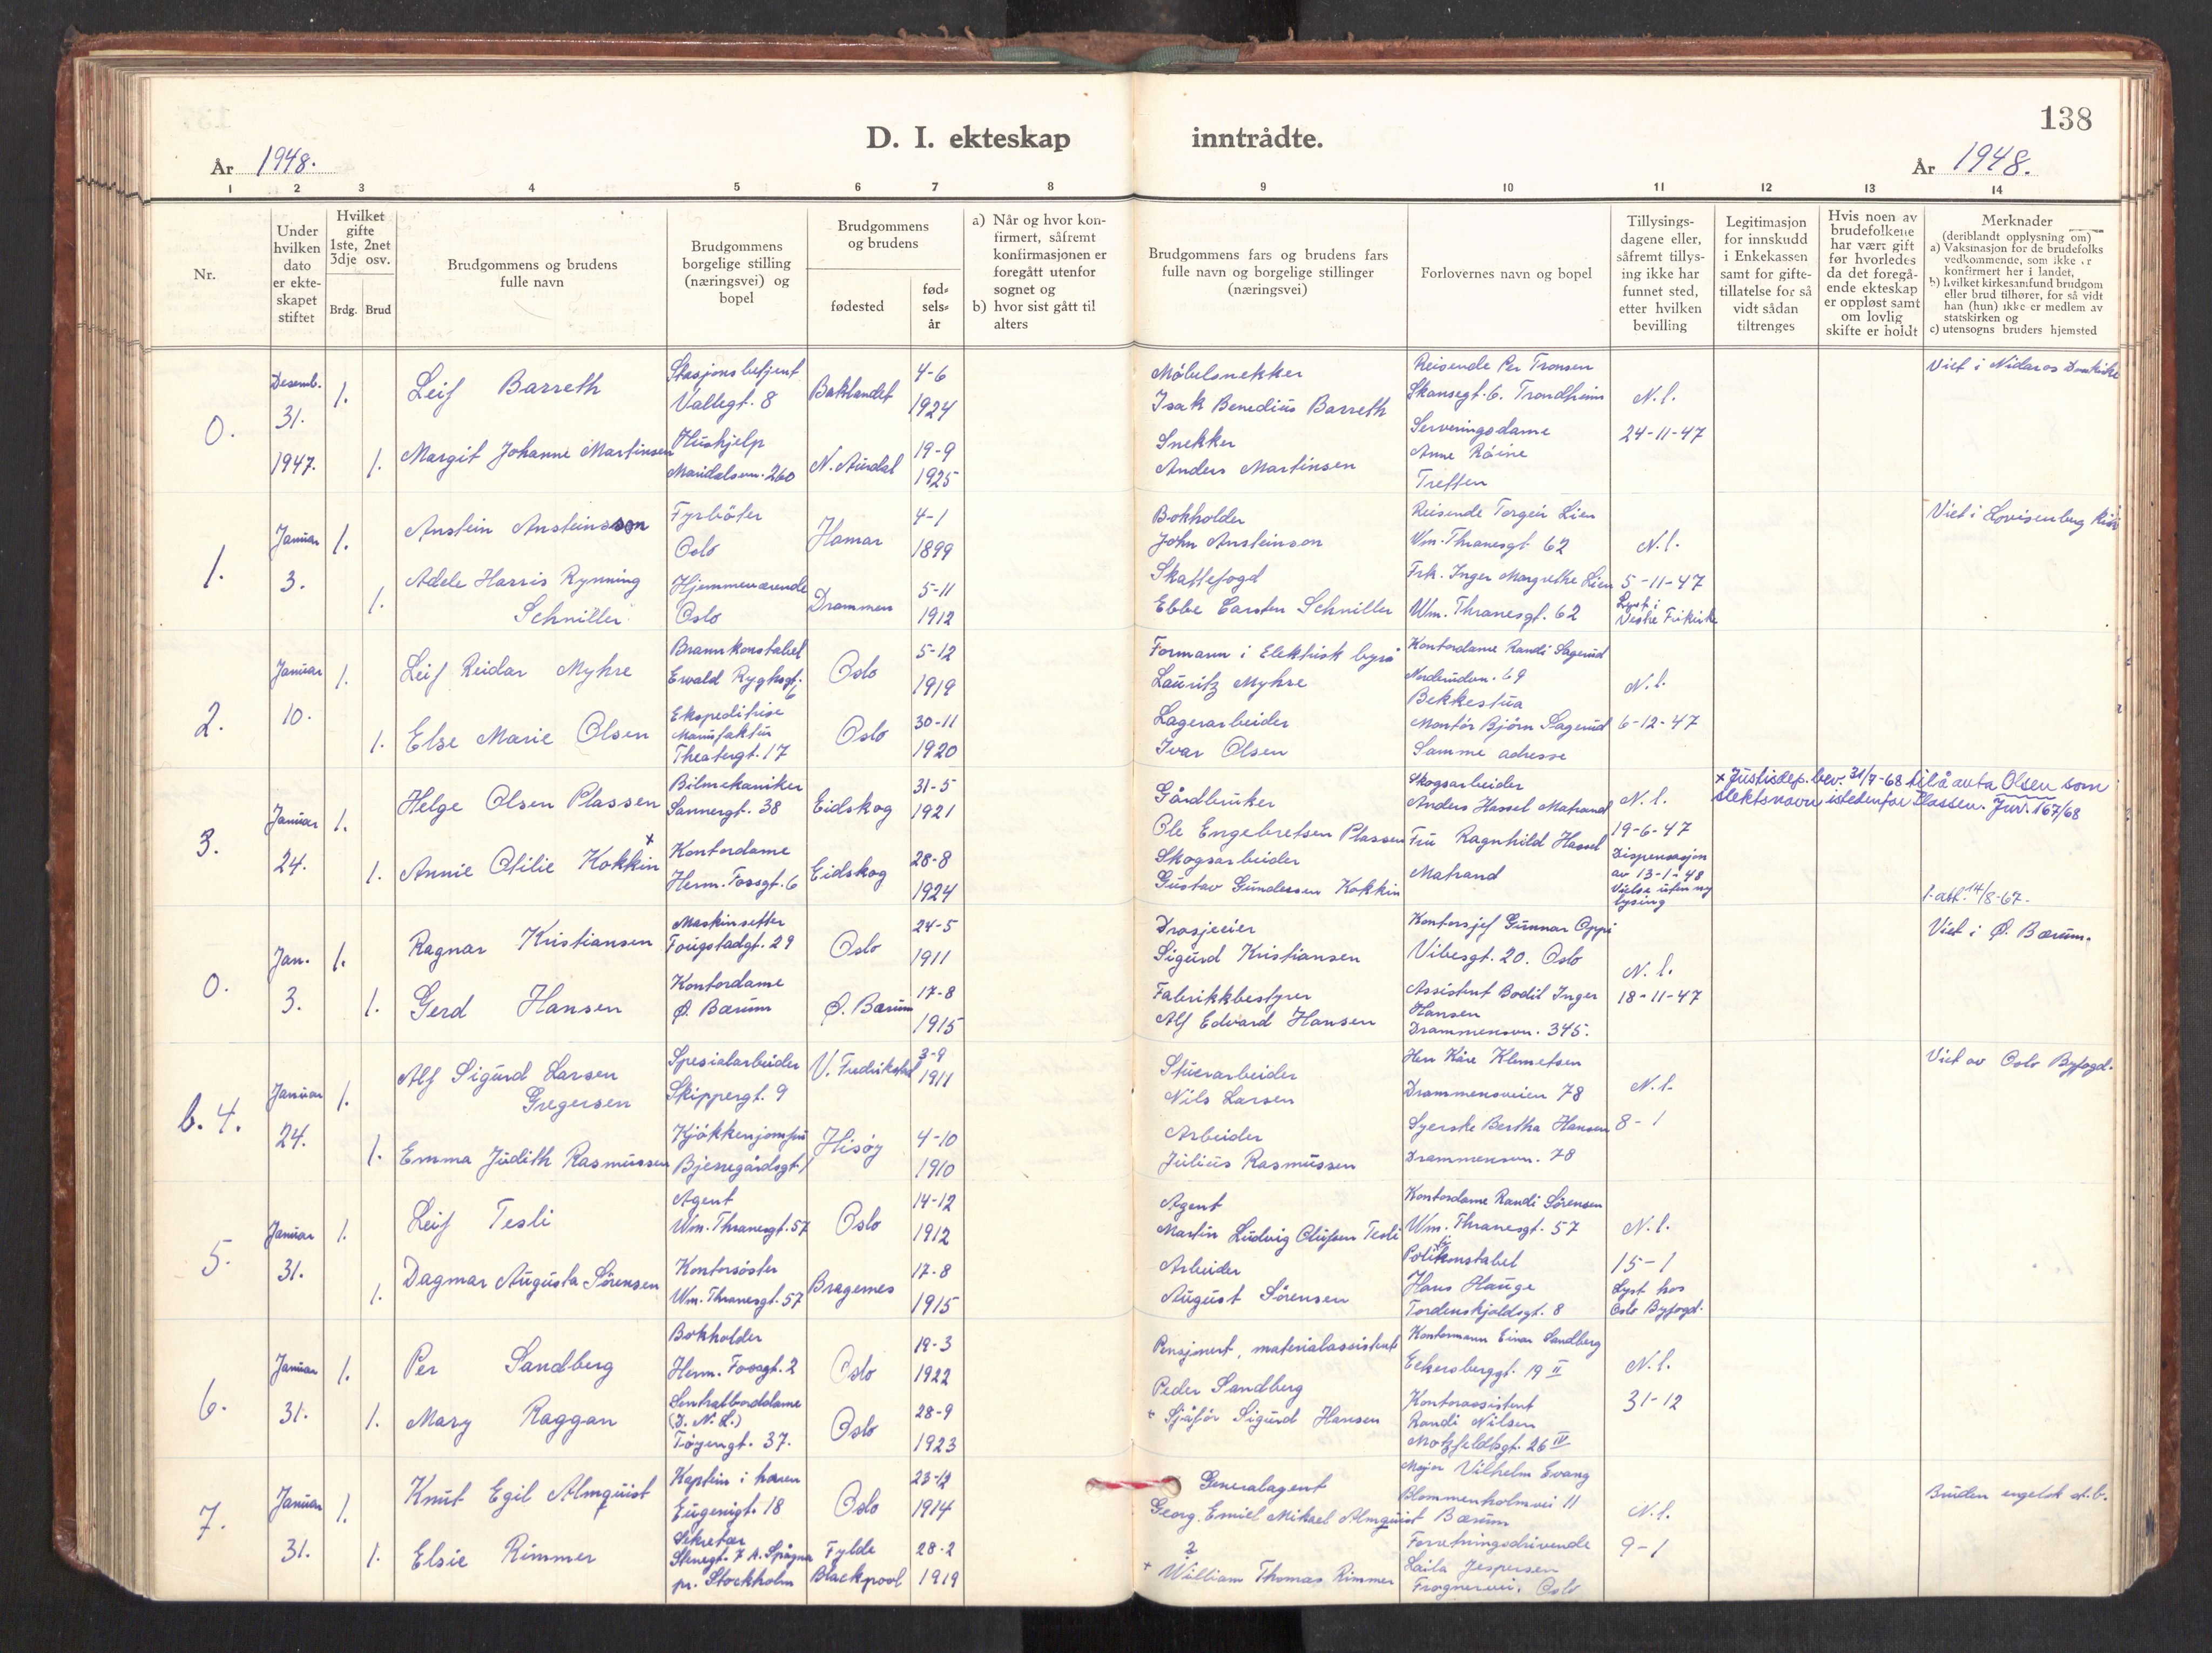 138
D. I. ekteskap inntrådte.
År 1948. År 1948.
1 2 3 4 5 6 7 8 9 10 11 12 13 14
Nr.
Under
hvilken
dato
er ekte-
skapet
stiftet
Hvilket
gifte
1ste, 2net
3dje osv.
Brdg. Brud
Brudgommens og brudens
fulle navn
Brudgommens
borgelige stilling
(næringsvei) og
bopel
Brudgommens
og brudens
fødested
fød-
sels-
år
a) Når og hvor kon-
firmert, såfremt
konfirmasjonen er
foregått utenfor
sognet og
b) hvor sist gått til
alters
Brudgommens fars og brudens fars
fulle navn og borgelige stillinger
(næringsvei)
Forlovernes navn og bopel
Tillysings-
dagene eller,
såfremt tillys-
ing ikke har
funnet sted,
etter hvilken
bevilling
Legitimasjon
for innskudd
i Enkekassen
samt for gifte-
tillatelse for så
vidt sådan
tiltrenges
Hvis noen av
brudefolkene
har vært gift
før hvorledes
da det foregå-
ende ekteskap
er oppløst samt
om lovlig
skifte er holdt
Merknader
(deriblandt opplysning om)
a) Vaksinasjon for de brudefolks
vedkommende, som ikke er
konfirmert her i landet,
b) hvilket kirkesamfund brudgom
eller brud tilhører, for så vidt
han (hun) ikke er medlem av
statskirken og
c) utensogns bruders hjemsted
0.
Desemb.
31.
1947.
1.
Leif Barreth
Stasjonsbetjent
Vallegt. 8
Baklandet
4-6
1924
Møbelsnekker
Isak Benedius Barreth
Reisende Per Tronsen
Skansegt. 6. Trondheim
N.l.
24-11-47
Viet i Nidaros Domkirke
1.
Margit Johanne Martinsen
Hushjelp
Maridalsvn. 260
N. Aurdal
19-9
1925
Snekker
Anders Martinsen
Serveringsdame
Anne Røine
Tretten
1.
Januar
3.
1.
Anstein Ansteinsson
Fyrbøter
Oslo
Hamar
4-1
1899
Bokholder
John Ansteinson
Reisende Torgeir Lien
Wm. Thranesgt 62
N.l.
5-11-47
Lyst i
Vestre Frikirke
Viet i Lovisenberg Kirke
1.
Adele Harris Rynning
Schnitler
Hjemmeværende
Oslo
Drammen
5-11
1912
Skattefogd
Ebbe Carsten Schnitler
Frk. Inger Margrethe Lien
Wm. Thranesgt. 62
2.
Januar
10.
1.
Leif Reidar Myhre
Brannkonstabel
Ewald Ryghsgt.
6
Oslo
5-12
1919
Formann i Elektrisk byrå
Lauritz Myhre
Kontordame Randi Sagerud
69
Bekkestua
N.l.
6-12-47
1.
Else Marie Olsen
Ekspeditrise
Manufaktur
Theatergt. 17
Oslo
30-11
1920
Lagerarbeider
Ivar Olsen
Montør Bjørn Sagerud
Samme adresse
3.
Januar
24.
1.
Helge Olsen Plassen
x
Bilmekaniker
Sannergt. 38
Eidskog
31-5
1921
Gårdbruker
Ole Engebretsen Plassen
Skogsarbeider
Anders Hassel Matrand
N.l.
19-6-47
Dispensasjon
av 13-1-48
Vielse uten ny
lysing
x Justisdep. bev. 31/7-68 til å anta Olsen som
slektsnavn istedenfor Plassen. Jnr. 167/68
1.
Annie Otilie Kokkin
Kontordame
Herm. Fossgt. 6
Eidskog
28-8
1924
Skogsarbeider
Gustav Gundersen Kokkin
Fru Ragnhild Hassel
Matrand
1-att. 14/8-67.
0.
Jan.
3.
1.
Ragnar Kristiansen
Maskinsetter
Fougstadgt. 29
Oslo
24-5
1911
Drosjeeier
Sigurd Kristiansen
Kontorsjef Gunnar Oppi
Vibesgt. 20. Oslo
N.l.
18-11-47
Viet i Ø. Bærum.
1.
Gerd Hansen
Kontordame
Ø. Bærum
Ø. Bærum
17-8
1915
Fabrikkbestyrer
Alf Edvard Hansen
Assistent Bodil Inger
Hansen
Drammensvn. 345.
b. 4.
Januar
24.
1.
Alf Sigurd Larsen
Gregersen
Spesialarbeider
Skippergt. 9
V. Fredrikstad
3-9
1911
Stuerarbeider
Nils Larsen
Herr Kåre Klemetsen
Drammensveien 78
N.l.
8-1
Viet av Oslo Byfogd.
1.
Emma Judith Rasmussen
Kjøkkenjomfru
Bjerregårdsgt. 1
Hisøy
4-10
1910
Arbeider
Julius Rasmussen
Syerske Bertha Hansen
Drammensvn. 78
5.
Januar
31.
1.
Leif Tesli
Agent
Wm. Thranesgt. 57
Oslo
14-12
1912
Agent
Martin Ludvig Olufsen Tesli
Kontordame Randi Sørensen
Wm. Thranesgt. 57
N.l.
15-1
Lyst hos
Oslo Byfogd.
1.
Dagmar Augusta Sørensen
Kontorsøster
Wm. Thranesgt. 57
Bragernes
17-8
1915
Arbeider
August Sørensen
Politikonstabel
Hans Hauge
Tordenskjoldsgt. 8
6.
Januar
31.
1.
Per Sandberg
Bokholder
Herm. Fossgt. 2
Oslo
19-3
1922
Pensjonert, materialassistent
Peder Sandberg
Kontormann Einar Sandberg
Eckersberggt. 19 II
N.l.
31-12
1.
Mary Raggan
Sentralborddame
(D. N. L.)
Tøyengt. 37.
Oslo
28-9
1923
+ Sjåfør Sigurd Hansen
Kontorassistent
Randi Nilsen
Motzfeldtsgt. 26 IV
7.
Januar
31.
1.
Knut Egil Almquist
Kaptein i hæren
Eugenigt. 18
Oslo
23-12
1914
Generalagent
Georg Emiel Mikael Almquist
Major Vilhelm Evang
Blommenholmvei 11
Bærum
N.l.
9-1
Bruden engelsk st.b.
1.
Elsie Rimmer
Sekretær
Stenegt. 7 A.
pr. Stockholm
Fylde
Blackpool
28-2
1919
?
+ William Thomas Rimmer
Forretningsdrivende
Laila Jespersen
Frognervei. Oslo